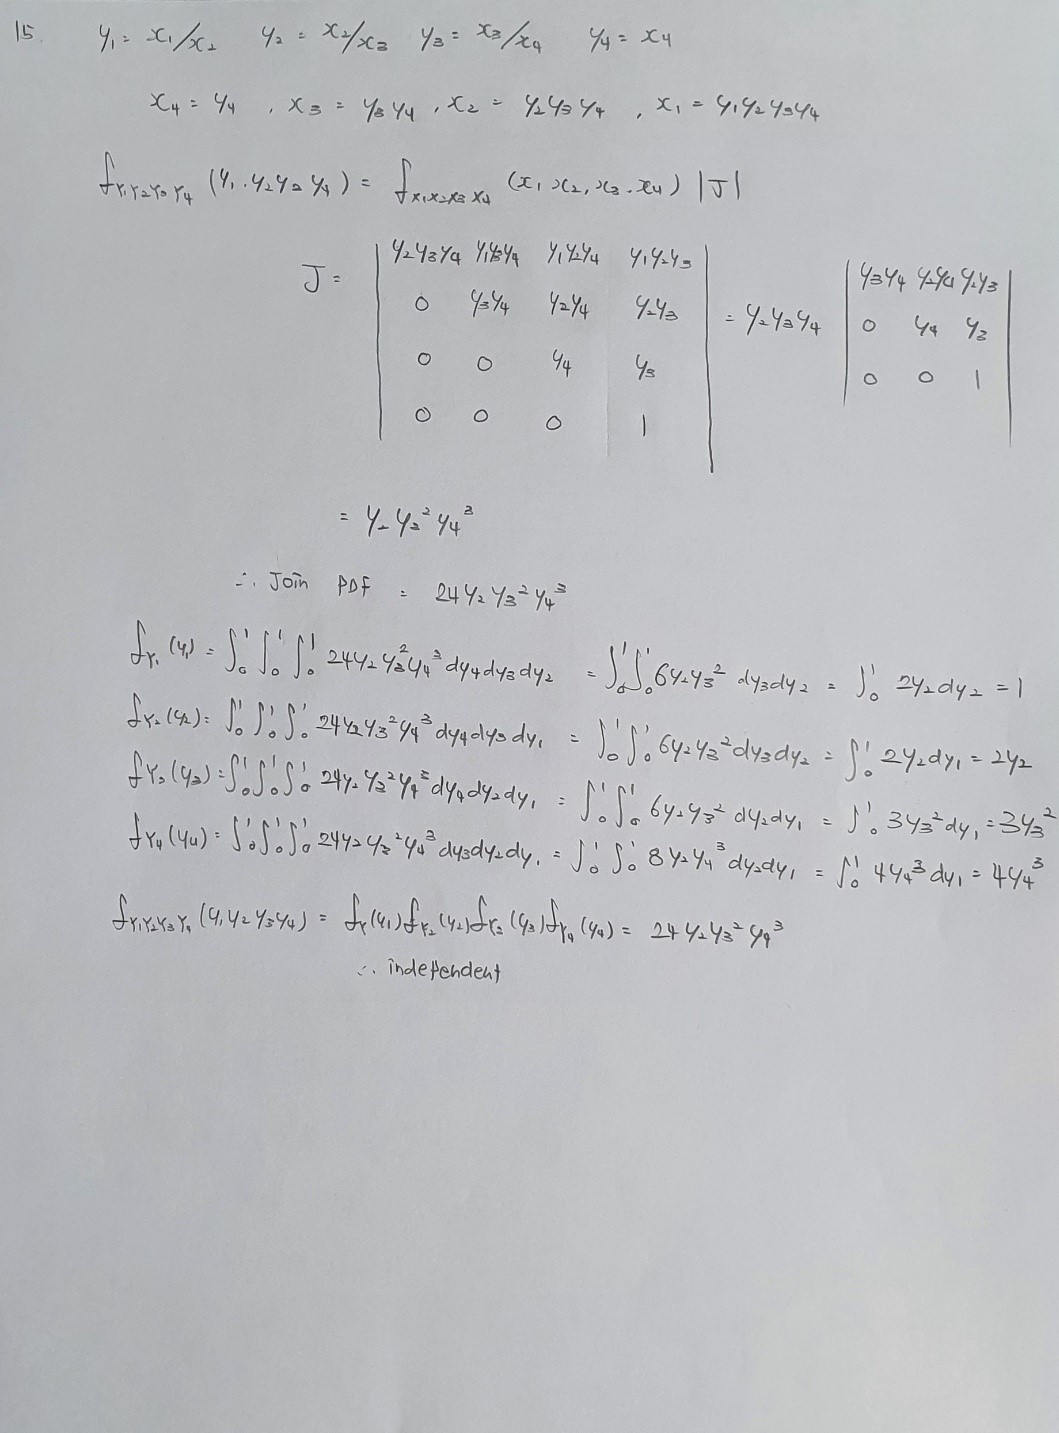 15. y₁ = x₁/x₂ y₂ = x₂/x₃ y₃ = x₃/x₄ y₄ = x₄
x₄ = y₄ , x₃ = y₃y₄ , x₂ = y₂y₃y₄ , x₁ = y₁y₂y₃y₄
f_Y₁Y₂Y₃Y₄ (y₁.y₂y₃y₄) = f_X₁X₂X₃X₄ (x₁x₂,x₃.x₄) |J|
J = | y₂y₃y₄ y₁y₃y₄ y₁y₂y₄ y₁y₂y₃ | = y₂y₃y₄ | y₃y₄ y₂y₄ y₂y₃ |
| 0 y₃y₄ y₂y₄ y₂y₃ | | 0 y₄ y₃ |
| 0 0 y₄ y₃ | | 0 0 1 |
| 0 0 0 1 |
= y₂y₃²y₄³
∴ Join PDF = 24y₂y₃²y₄³
f_Y₁(y₁) = ∫₀¹∫₀¹∫₀¹ 24y₂y₃²y₄³dy₄dy₃dy₂ = ∫₀¹∫₀¹6y₂y₃² dy₃dy₂ = ∫₀¹ 2y₂dy₂ = 1
f_Y₂(y₂) = ∫₀¹∫₀¹∫₀¹ 24y₂y₃²y₄³dy₄dy₃dy₁ = ∫₀¹∫₀¹6y₂y₃²dy₃dy₂ = ∫₀¹ 2y₂dy₁ = 2y₂
f_Y₃(y₃) = ∫₀¹∫₀¹∫₀¹ 24y₂y₃²y₄³dy₄dy₂dy₁ = ∫₀¹∫₀¹ 6y₂y₃² dy₂dy₁ = ∫₀¹ 3y₃²dy₁ = 3y₃²
f_Y₄(y₄) = ∫₀¹∫₀¹∫₀¹ 24y₂y₃²y₄³dy₃dy₂dy₁ = ∫₀¹∫₀¹ 8y₂y₄³dy₂dy₁ = ∫₀¹ 4y₄³dy₁ = 4y₄³
f_Y₁Y₂Y₃Y₄ (y₁y₂y₃y₄) = f_Y(y₁)f_Y₂(y₂)f_Y₃(y₃)f_Y₄(y₄) = 24y₂y₃²y₄³
∴ independent